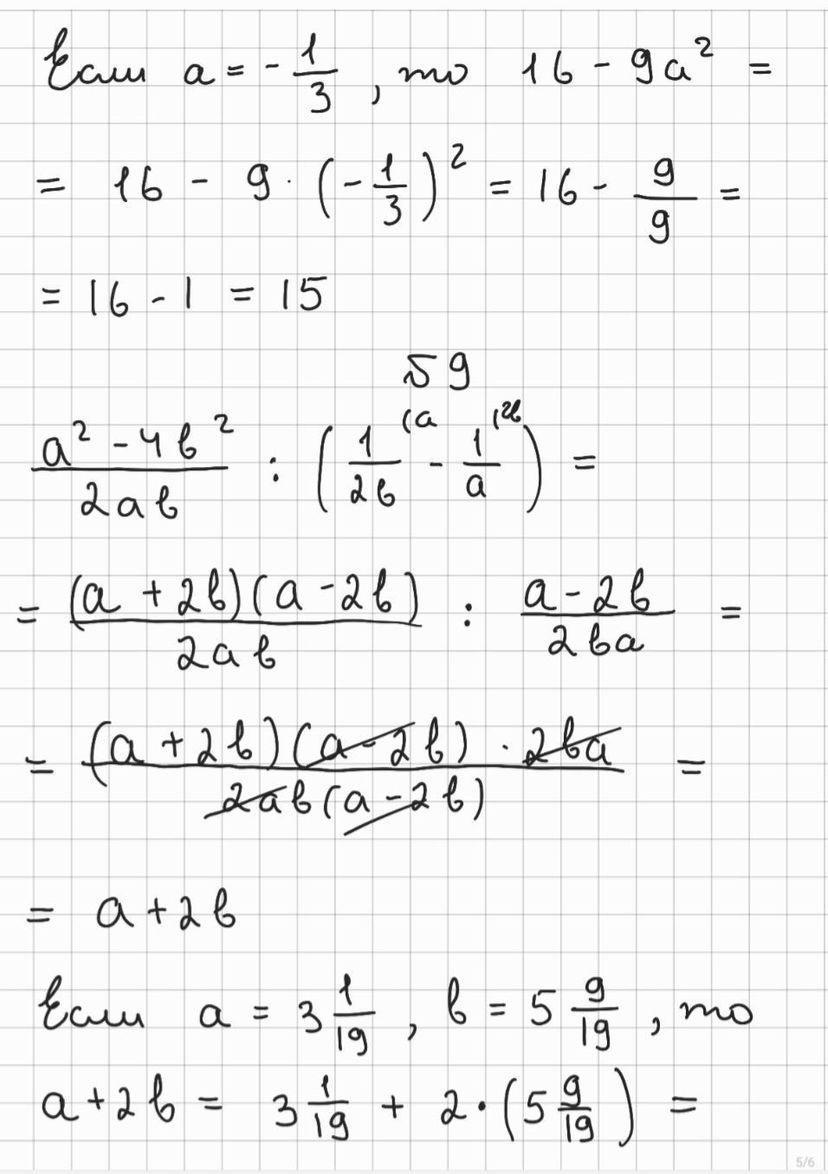 Если a = -1/3, то 16 - 9a² =
= 16 - 9 · (-1/3)² = 16 - 9/9 =
= 16 - 1 = 15
√59
(a² - 4b²)/(2ab) : (1/(2b) (a - 1/a (2b) =
= ((a + 2b)(a - 2b))/(2ab) : (a - 2b)/(2ba) =
= ((a + 2b)(a - 2b) · 2ba)/(2ab(a - 2b)) =
= a + 2b
Если a = 3 1/19, b = 5 9/19, то
a + 2b = 3 1/19 + 2 · (5 9/19) =
5/6